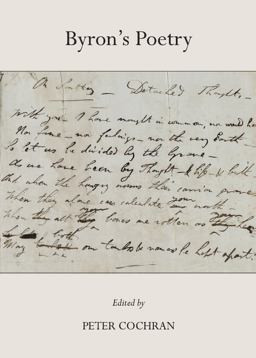 Byron's Poetry
On Southey — Detached Thoughts —
With you I have nought in common, nor would h
Nor fame — nor feelings — nor the very Earth —
So let us be divided by the Grave —
As we have been by Thought — & life — & birth
And when the hungry worms their carrion
When they alone can calculate worth —
When all bones are rotten as
both
May our tombs be kept apart
Edited by
PETER COCHRAN